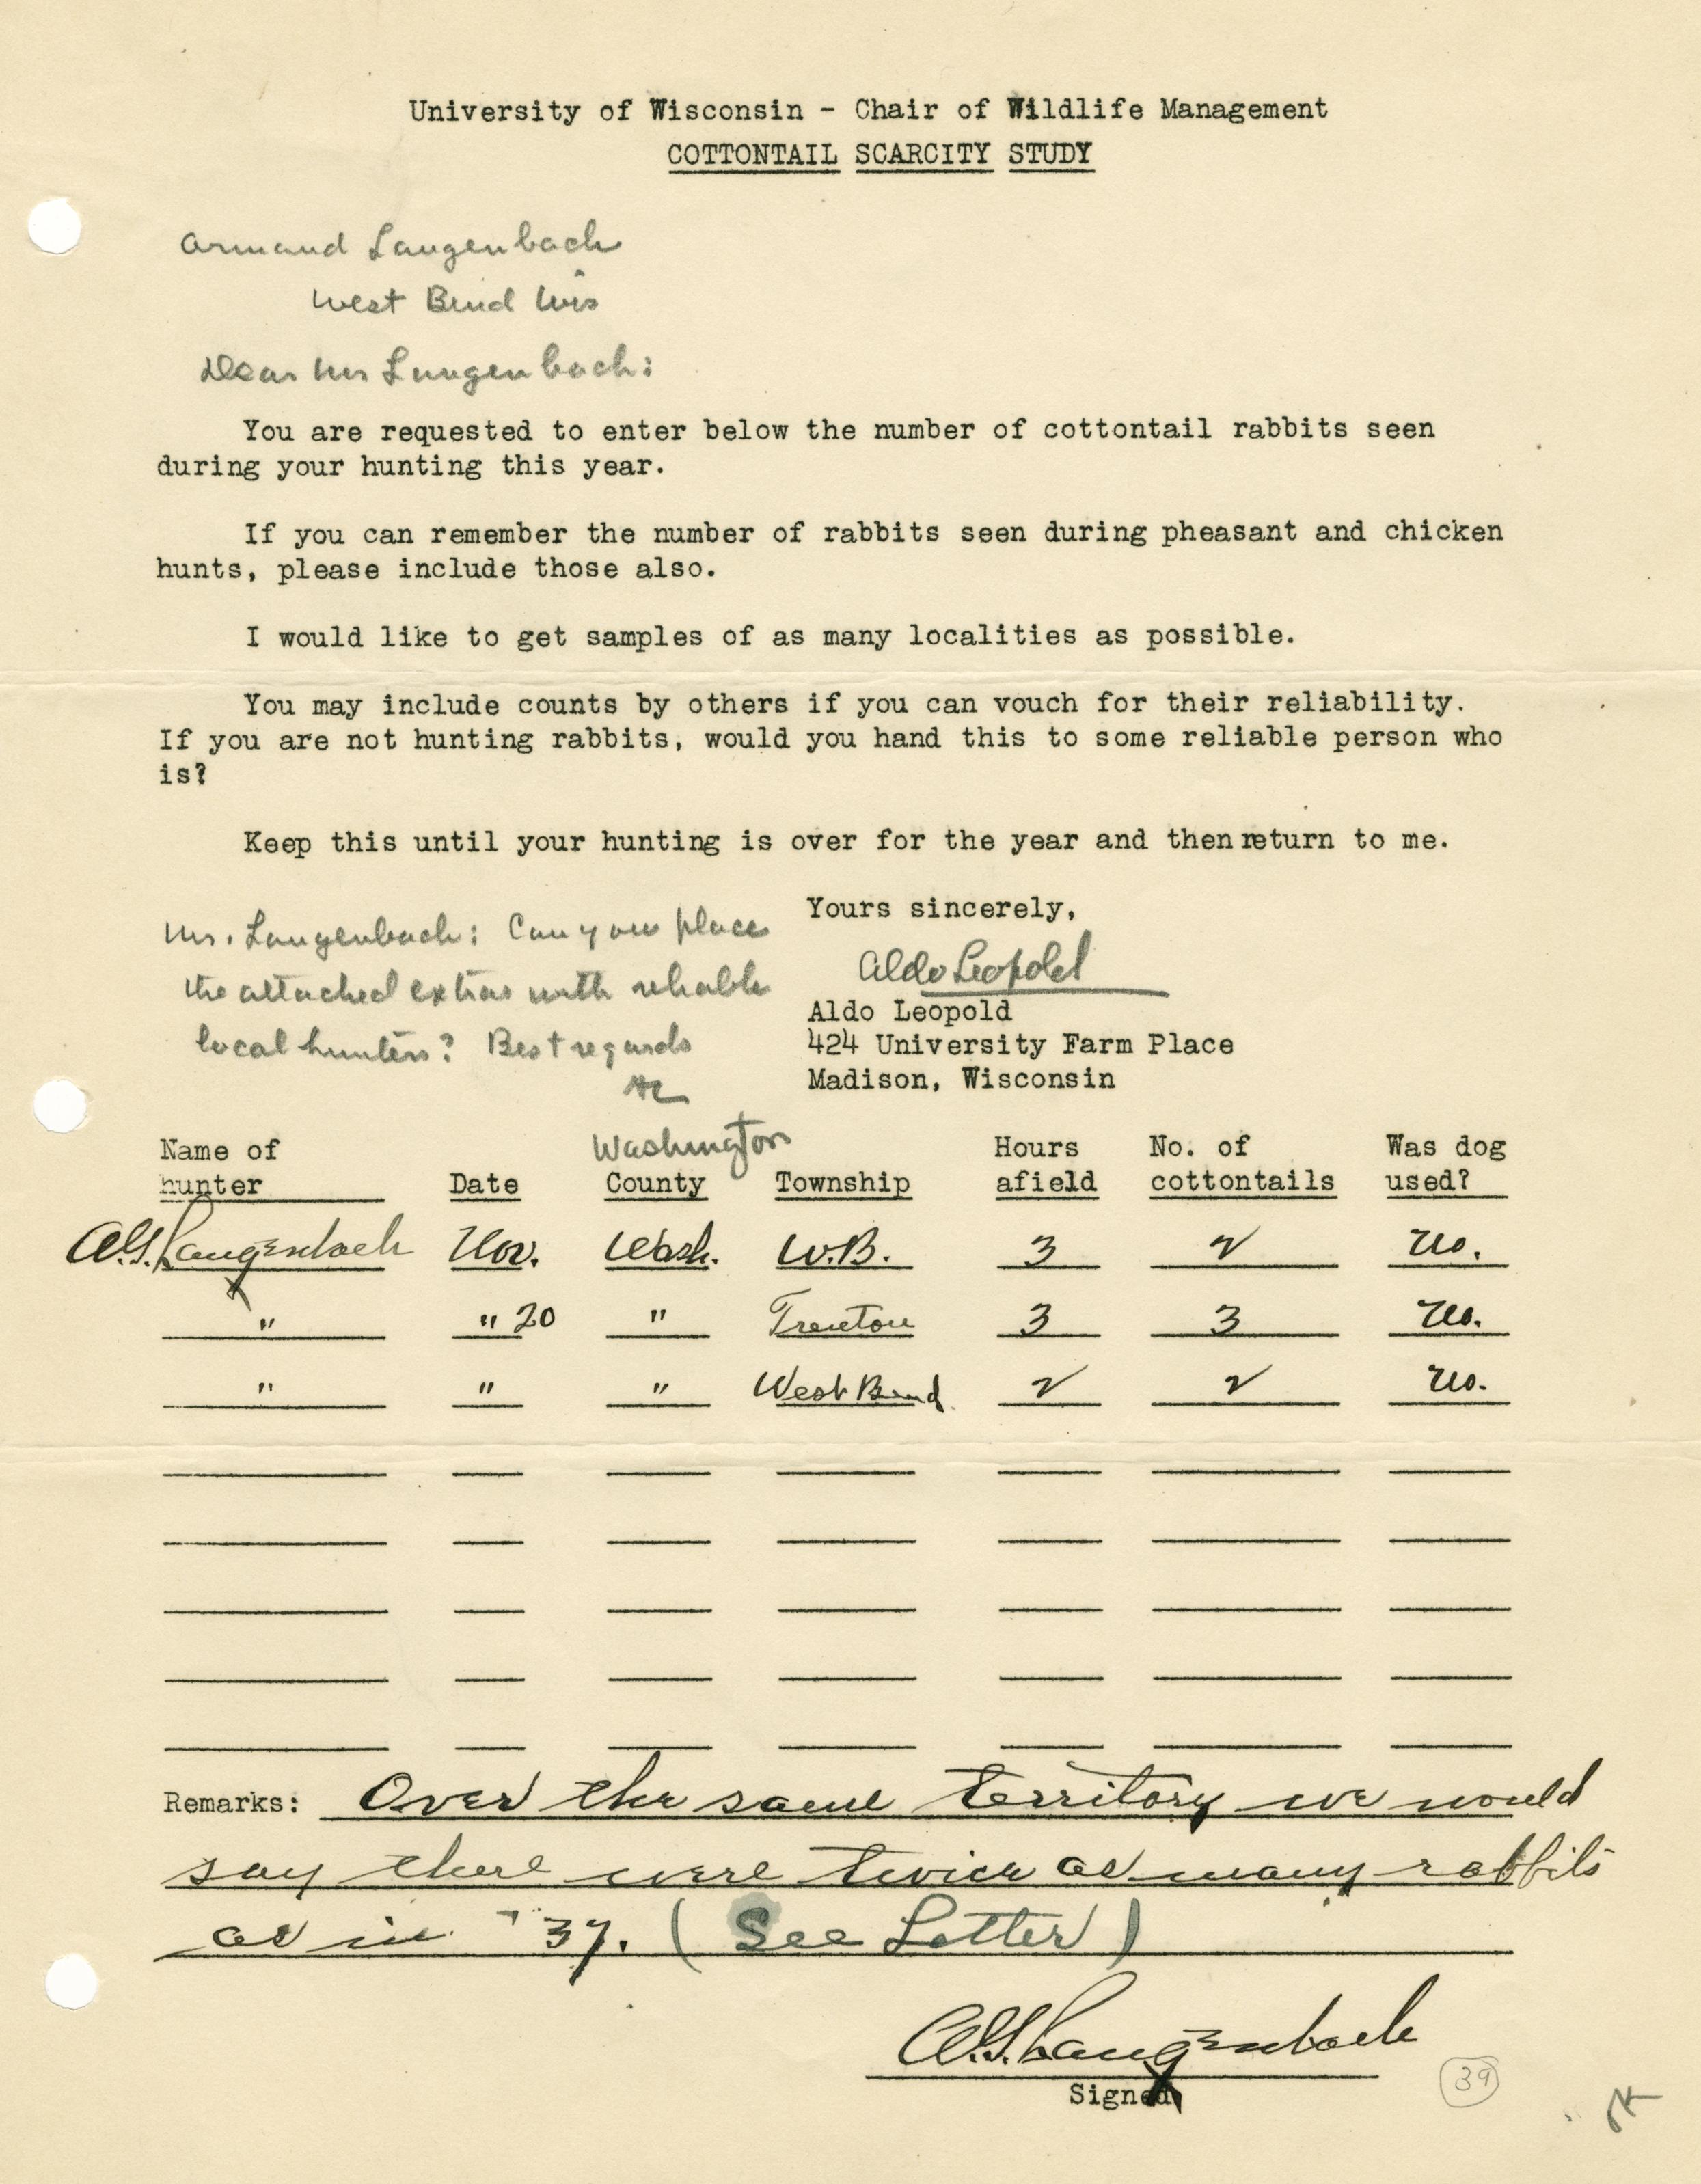 University of Wisconsin - Chair of Wildlife Management
COTTONTAIL SCARCITY STUDY
Armand Langenbach
West Bend Wis
Dear Mr Langenbach:
You are requested to enter below the number of cottontail rabbits seen
during your hunting this year.
If you can remember the number of rabbits seen during pheasant and chicken
hunts, please include those also.
I would like to get samples of as many localities as possible.
You may include counts by others if you can vouch for their reliability.
If you are not hunting rabbits, would you hand this to some reliable person who
is?
Keep this until your hunting is over for the year and then return to me.
Yours sincerely,
Mr. Langenbach: Can you place
the attached extras with reliable
local hunters? Best regards
AL
Aldo Leopold
Aldo Leopold
424 University Farm Place
Madison, Wisconsin
Washington
Name of hunter Date County Township Hours afield No. of cottontails Was dog used?
A.G. Langenbach Nov. Wash. W.B. 3 2 no.
" " 20 " Trenton 3 3 no.
" " " West Bend 2 2 no.
Remarks: Over the same territory we would
say there were twice as many rabbits
as in '37. (See Letter)
A.G. Langenbach
Signed
39